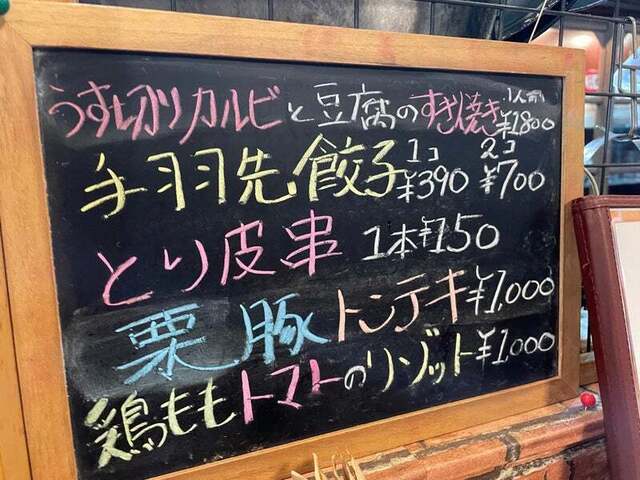 うす切りカルビと豆腐のすき焼き 1人前 ¥1800
手羽先餃子 1コ ¥390 2コ ¥700
とり皮串 1本¥150
栗豚トンテキ¥1,000
鶏ももトマトのリゾット¥1,000